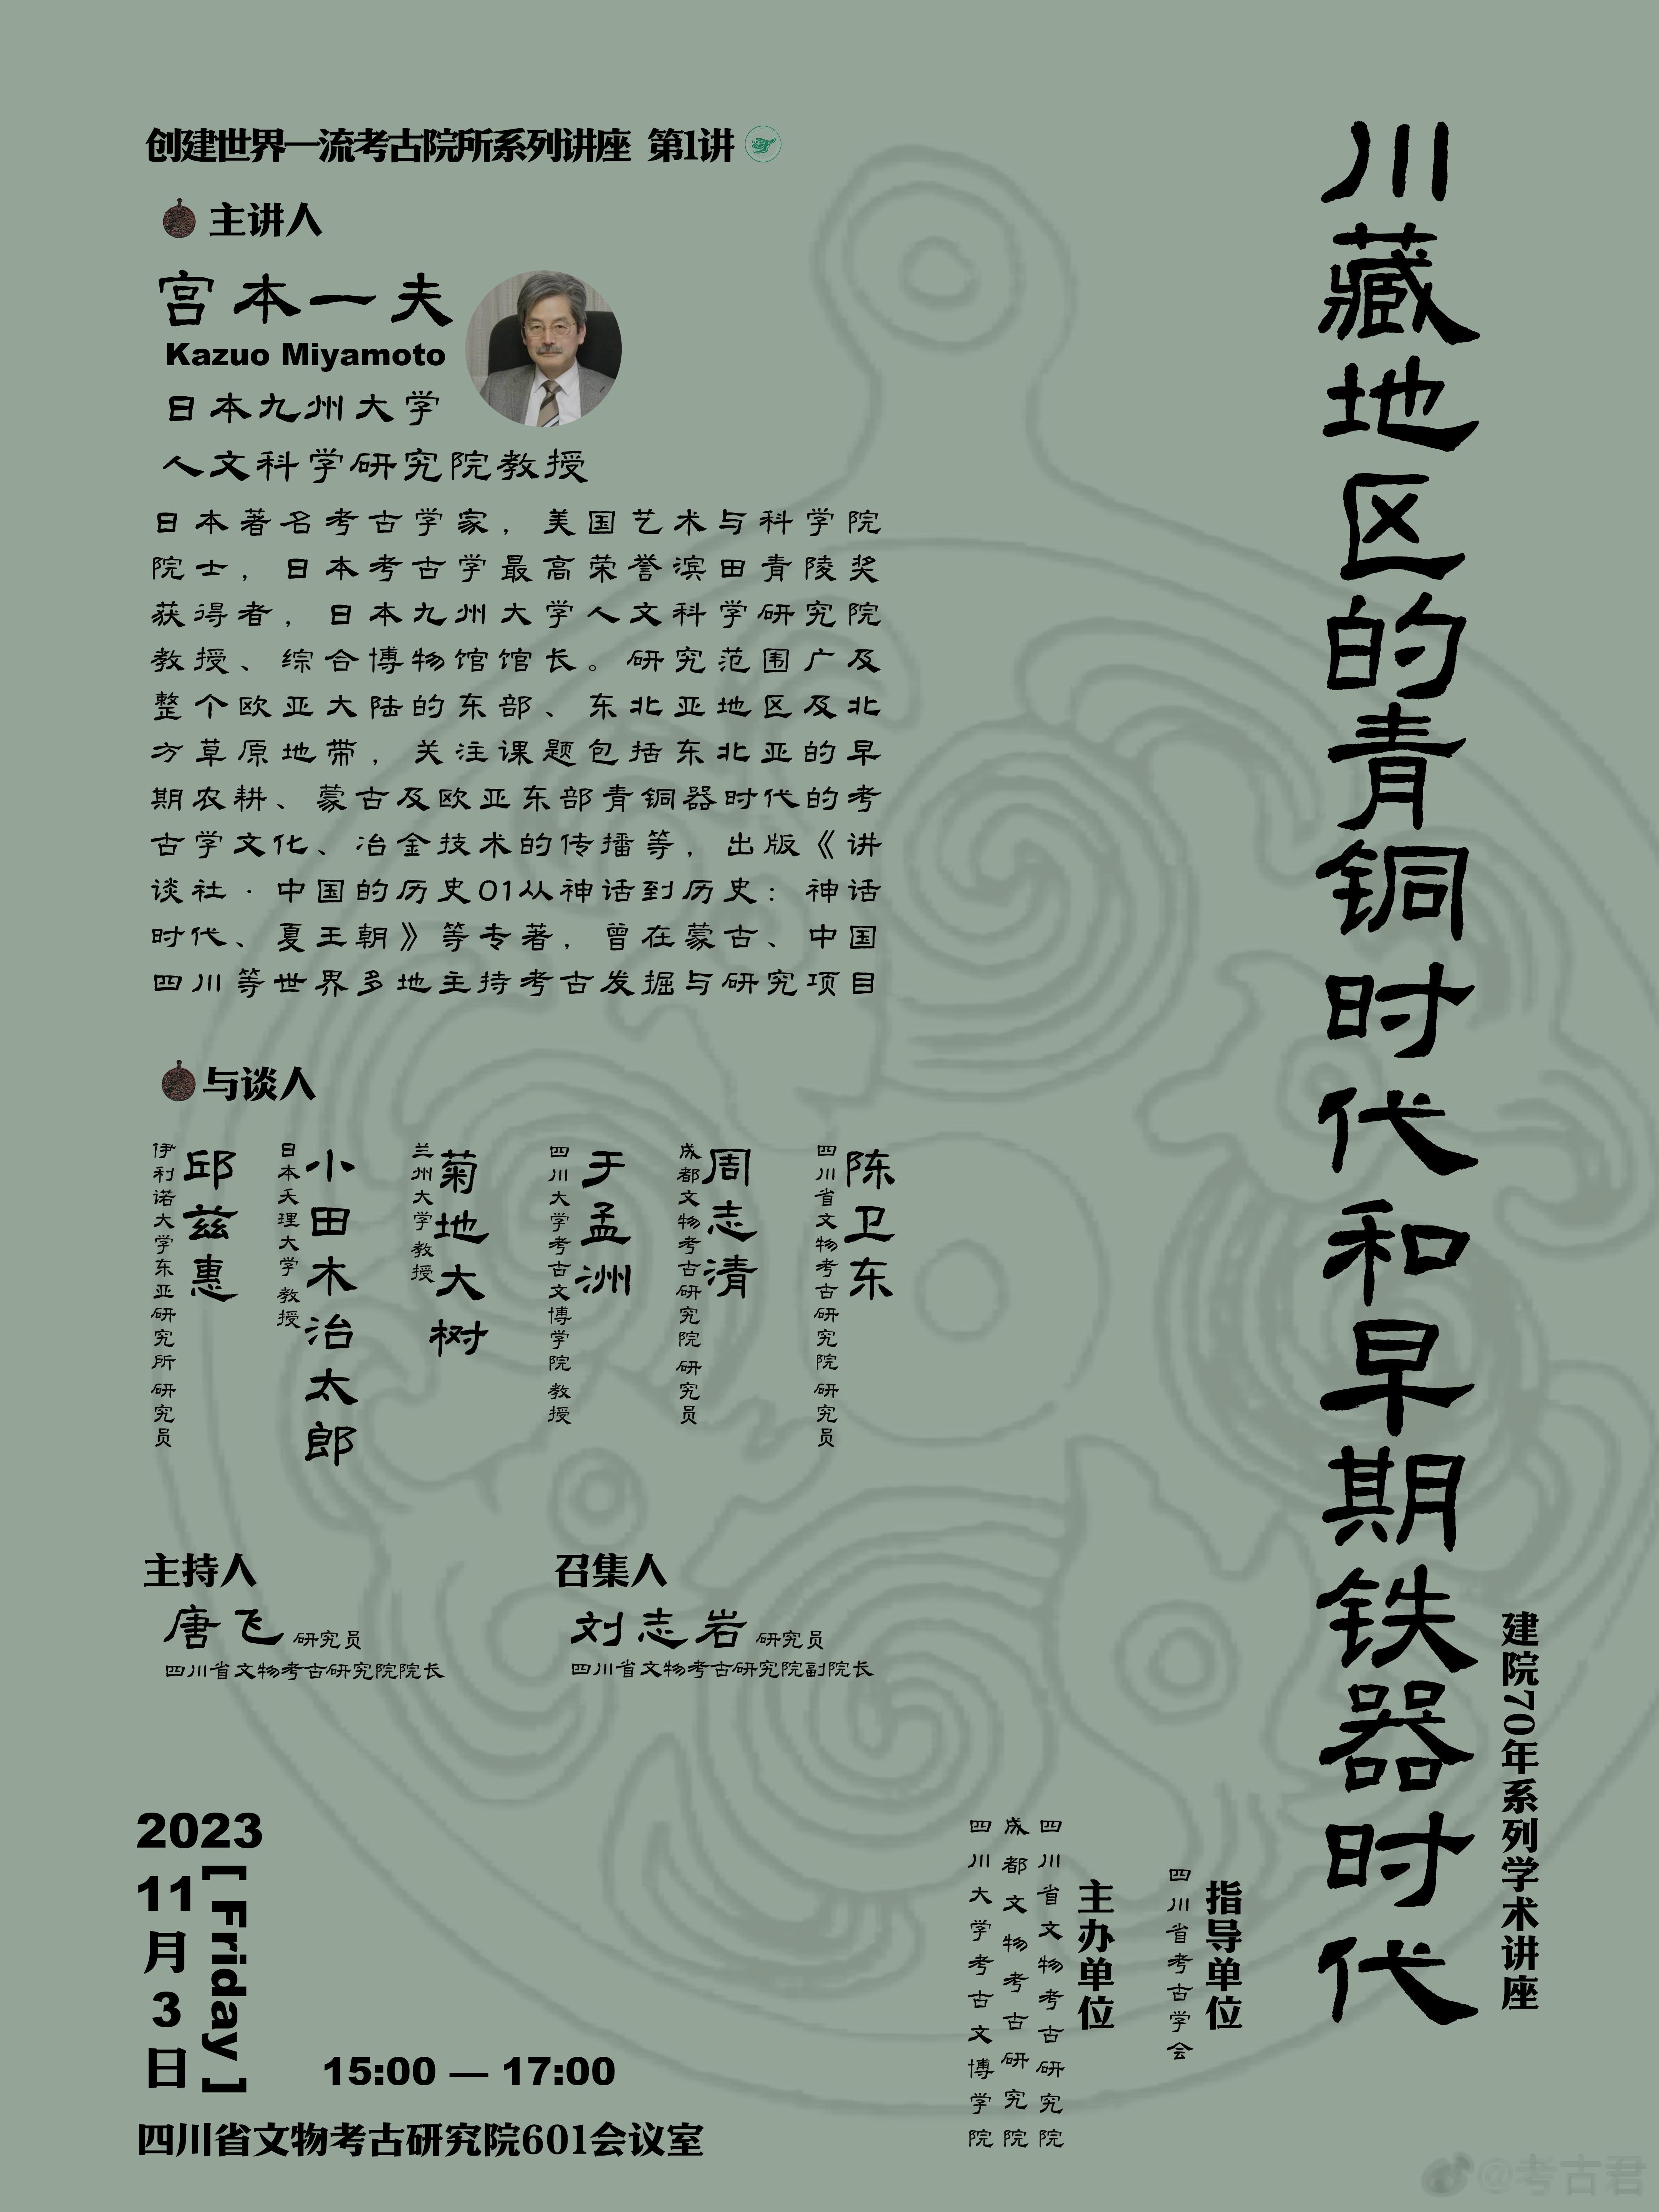 创建世界一流考古院所系列讲座 第1讲
主讲人
宫本一夫
Kazuo Miyamoto
日本九州大学
人文科学研究院教授
日本著名考古学家，美国艺术与科学院
院士，日本考古学最高荣誉滨田青陵奖
获得者，日本九州大学人文科学研究院
教授、综合博物馆馆长。研究范围广及
整个欧亚大陆的东部、东北亚地区及北
方草原地带，关注课题包括东北亚的早
期农耕、蒙古及欧亚东部青铜器时代的考
古学文化、冶金技术的传播等，出版《讲
谈社·中国的历史01从神话到历史：神话
时代、夏王朝》等专著，曾在蒙古、中国
四川等世界多地主持考古发掘与研究项目
与谈人
邱兹惠
伊利诺大学东亚研究所 研究员
小田木治太郎
日本天理大学 教授
菊地大树
兰州大学 教授
于孟洲
四川大学考古文博学院 教授
周志清
成都文物考古研究院 研究员
陈卫东
四川省文物考古研究院 研究员
主持人
唐飞 研究员
四川省文物考古研究院院长
召集人
刘志岩 研究员
四川省文物考古研究院副院长
2023
11月3日
[Friday]
15:00 — 17:00
四川省文物考古研究院601会议室
川藏地区的青铜时代和早期铁器时代
建院70年系列学术讲座
指导单位
四川省考古学会
主办单位
四川省文物考古研究院
成都文物考古研究院
四川大学考古文博学院
@考古君